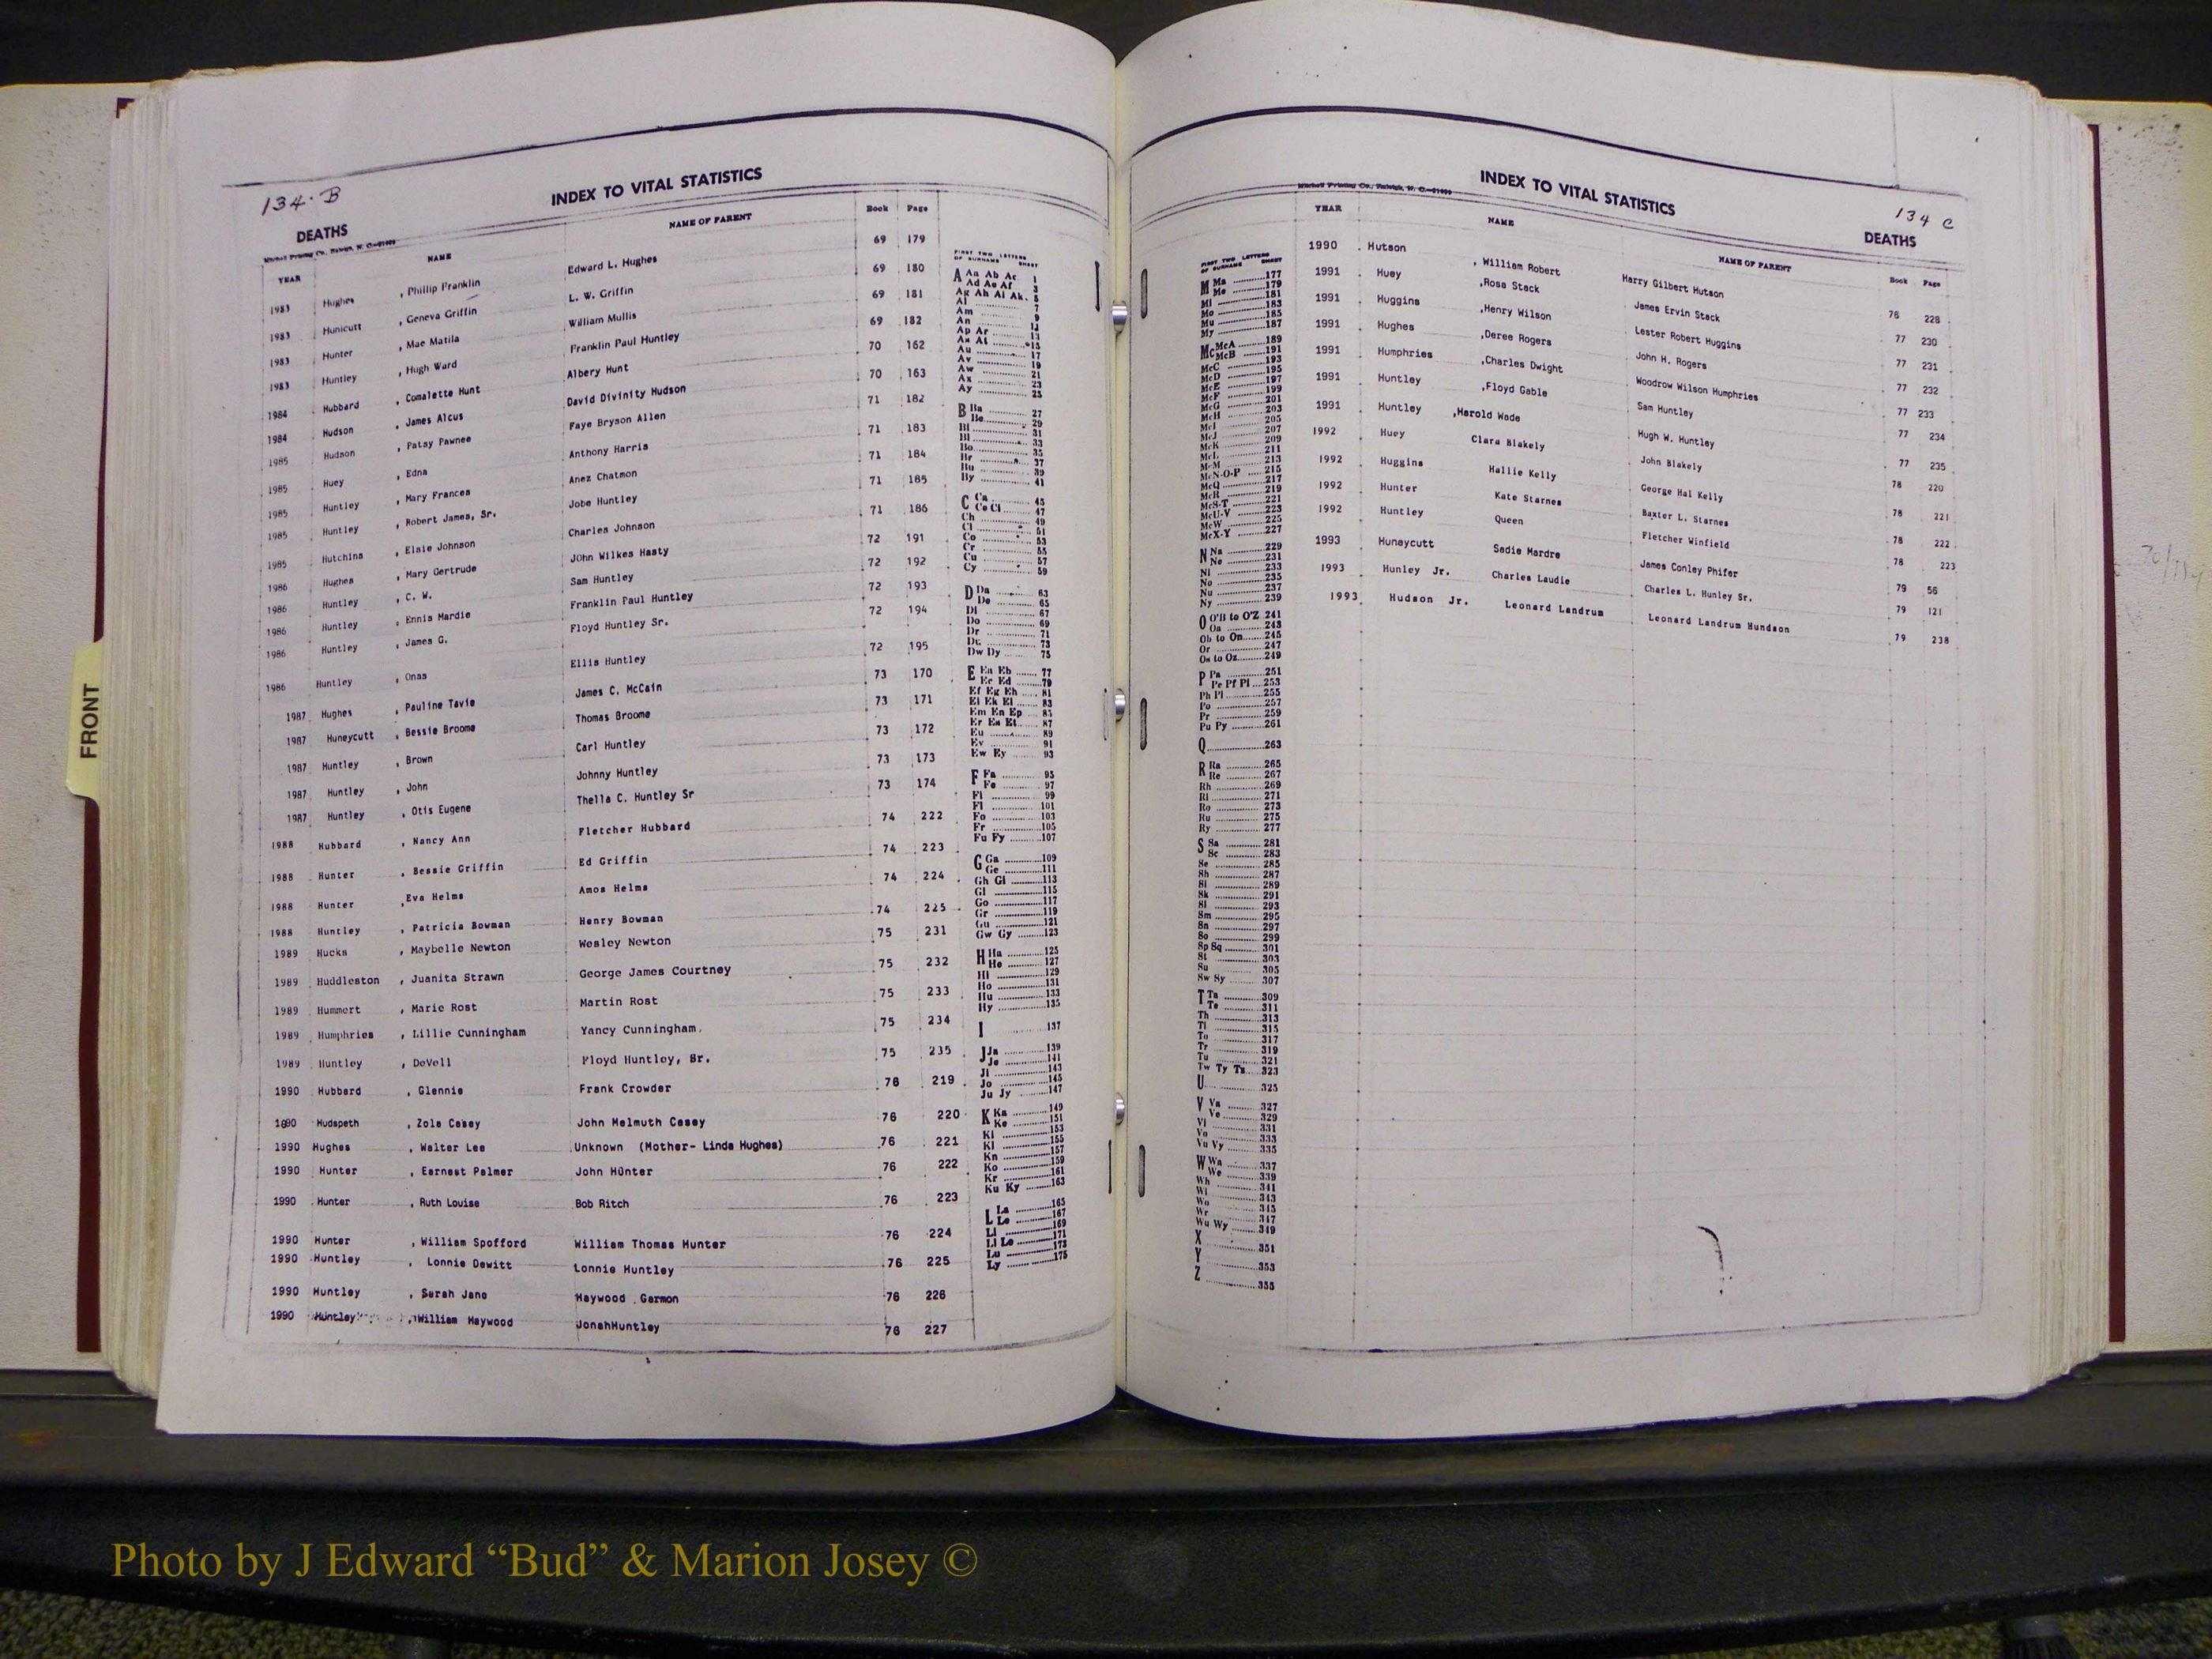 134. B
INDEX TO VITAL STATISTICS
DEATHS
Mitchell Printing Co., Raleigh, N. C.
YEAR NAME NAME OF PARENT Book Page
1983 Hughes , Phillip Franklin Edward L. Hughes 69 179
1983 Hunicutt , Geneva Griffin L. W. Griffin 69 180
1983 Hunter , Mae Matila William Mullis 69 181
1983 Huntley , Hugh Ward Franklin Paul Huntley 69 182
1984 Hubbard , Comalette Hunt Albery Hunt 70 162
1984 Hudson , James Alcus David Divinity Hudson 70 163
1985 Hudson , Patsy Pawnee Faye Bryson Allen 71 182
1985 Huey , Edna Anthony Harris 71 183
1985 Huntley , Mary Frances Anez Chatmon 71 184
1985 Huntley , Robert James, Sr. Jobe Huntley 71 185
1985 Hutchins , Elsie Johnson Charles Johnson 71 186
1986 Hughes , Mary Gertrude JOhn Wilkes Hasty 72 191
1986 Huntley , C. W. Sam Huntley 72 192
1986 Huntley , Ennis Mardie Franklin Paul Huntley 72 193
1986 Huntley , James G. Floyd Huntley Sr. 72 194
1986 Huntley , Onas Ellis Huntley 72 195
1987 Hughes , Pauline Tavie James C. McCain 73 170
1987 Huneycutt , Bessie Broome Thomas Broome 73 171
1987 Huntley , Brown Carl Huntley 73 172
1987 Huntley , John Johnny Huntley 73 173
1987 Huntley , Otis Eugene Thella C. Huntley Sr 73 174
1988 Hubbard , Nancy Ann Fletcher Hubbard 74 222
1988 Hunter , Bessie Griffin Ed Griffin 74 223
1988 Hunter ,Eva Helms Amos Helms 74 224
1988 Huntley , Patricia Bowman Henry Bowman 74 225
1989 Hucks , Maybelle Newton Wesley Newton 75 231
1989 Huddleston , Juanita Strawn George James Courtney 75 232
1989 Hummert , Marie Rost Martin Rost 75 233
1989 Humphries , Lillie Cunningham Yancy Cunningham 75 234
1989 Huntley , DeVell Floyd Huntley, Sr. 75 235
1990 Hubbard , Glennie Frank Crowder 76 219
1990 Hudspeth , Zola Casey John Melmuth Casey 76 220
1990 Hughes , Walter Lee Unknown (Mother- Linda Hughes) 76 221
1990 Hunter , Earnest Palmer John Hünter 76 222
1990 Hunter , Ruth Louise Bob Ritch 76 223
1990 Hunter , William Spofford William Thomas Hunter 76 224
1990 Huntley , Lonnie Dewitt Lonnie Huntley 76 225
1990 Huntley , Sarah Jane Haywood Garmon 76 226
1990 Huntley , William Haywood JonahHuntley 76 227
FIRST TWO LETTERS OF SURNAME SHEET
A Aa Ab Ac 1
Ad Ae Af 3
Ag Ah Ai Ak 5
Al 7
Am 9
An 11
Ap Ar 13
As At 15
Au 17
Av 19
Aw 21
Ax 23
Ay 25
B Ba 27
Be 29
Bi 31
Bl 33
Bo 35
Br 37
Bu 39
By 41
C Ca 45
Ce Ci 47
Ch 49
Cl 51
Co 53
Cr 55
Cu 57
Cy 59
D Da 63
De 65
Di 67
Do 69
Dr 71
Du 73
Dw Dy 75
E Ea Eb 77
Ec Ed 79
Ef Eg Eh 81
Ei Ek El 83
Em En Ep 85
Er Es Et 87
Eu 89
Ev 91
Ew Ey 93
F Fa 95
Fe 97
Fi 99
Fl 101
Fo 103
Fr 105
Fu Fy 107
G Ga 109
Ge 111
Gh Gi 113
Gl 115
Go 117
Gr 119
Gu 121
Gw Gy 123
H Ha 125
He 127
Hi 129
Ho 131
Hu 133
Hy 135
I 137
J Ja 139
Je 141
Ji 143
Jo 145
Ju Jy 147
K Ka 149
Ke 151
Ki 153
Kl 155
Kn 157
Ko 159
Kr 161
Ku Ky 163
L La 165
Le 167
Li 169
Ll Lo 171
Lu 173
Ly 175
Mitchell Printing Co., Raleigh, N. C.
INDEX TO VITAL STATISTICS
134 C
DEATHS
YEAR NAME NAME OF PARENT Book Page
1990 Hutson , William Robert Harry Gilbert Hutson 76 228
1991 Huey ,Rosa Stack James Ervin Stack 77 230
1991 Huggins ,Henry Wilson Lester Robert Huggins 77 231
1991 Hughes ,Deree Rogers John H. Rogers 77 232
1991 Humphries ,Charles Dwight Woodrow Wilson Humphries 77 233
1991 Huntley ,Floyd Gable Sam Huntley 77 234
1991 Huntley ,Harold Wade Hugh W. Huntley 77 235
1992 Huey Clara Blakely John Blakely 78 220
1992 Huggins Hallie Kelly George Hal Kelly 78 221
1992 Hunter Kate Starnes Baxter L. Starnes 78 222
1992 Huntley Queen Fletcher Winfield 78 223
1993 Huneycutt Sadie Mardre James Conley Phifer 79 56
1993 Hunley Jr. Charles Laudie Charles L. Hunley Sr. 79 121
1993 Hudson Jr. Leonard Landrum Leonard Landrum Hundson 79 238
FIRST TWO LETTERS OF SURNAME SHEET
M Ma 177
Me 179
Mi 181
Mo 183
Mu 185
My 187
Mc McA 189
McB 191
McC 193
McD 195
McE 197
McF 199
McG 201
McH 203
McI 205
McJ 207
McK 209
McL 211
McM 213
McN-O-P 215
McQ 217
McR 219
McS-T 221
McU-V 223
McW 225
McX-Y 227
N Na 229
Ne 231
Ni 233
No 235
Nu 237
Ny 239
O O'B to O'Z 241
Oa 243
Ob to On 245
Or 247
Os to Oz 249
P Pa 251
Pe Pf Pi 253
Ph Pl 255
Po 257
Pr 259
Pu Py 261
Q 263
R Ra 265
Re 267
Rh 269
Ri 271
Ro 273
Ru 275
Ry 277
S Sa 281
Sc 283
Se 285
Sh 287
Si 289
Sk 291
Sl 293
Sm 295
Sn 297
So 299
Sp Sq 301
St 303
Su 305
Sw Sy 307
T Ta 309
Te 311
Th 313
Ti 315
To 317
Tr 319
Tu 321
Tw Ty Tz 323
U 325
V Va 327
Ve 329
Vi 331
Vo 333
Vu Vy 335
W Wa 337
We 339
Wh 341
Wi 343
Wo 345
Wr 347
Wu Wy 349
X 351
Y 353
Z 355
FRONT
Photo by J Edward “Bud” & Marion Josey ©